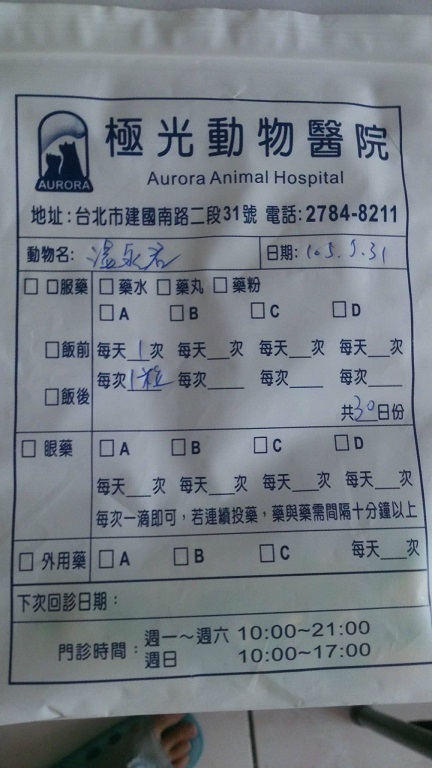 極光動物醫院
AURORA
Aurora Animal Hospital
地址:台北市建國南路二段31號 電話:2784-8211
動物名: 日期: 105.5.31
□ 口服藥 □ 藥水 □ 藥丸 □ 藥粉
□A □B □C □D
□飯前 每天1次 每天__次 每天__次 每天__次
□飯後 每次1粒 每次____ 每次____ 每次____
共30日份
□ 眼藥 □A □B □C □D
每天__次 每天__次 每天__次 每天__次
每次一滴即可,若連續投藥,藥與藥需間隔十分鐘以上
□ 外用藥 □A □B □C 每天__次
下次回診日期:
門診時間: 週一~週六 10:00~21:00
週日 10:00~17:00